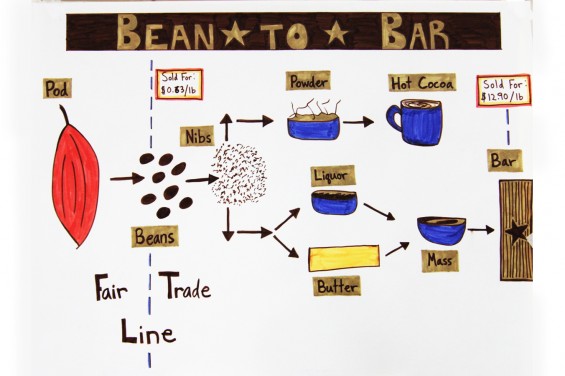 BEAN★TO★BAR
Pod
Sold For:
$0.83/lb
Powder
Hot Cocoa
Sold For:
$12.90/lb
Nibs
Liquor
Bar
Beans
Mass
Butter
Fair Trade
Line